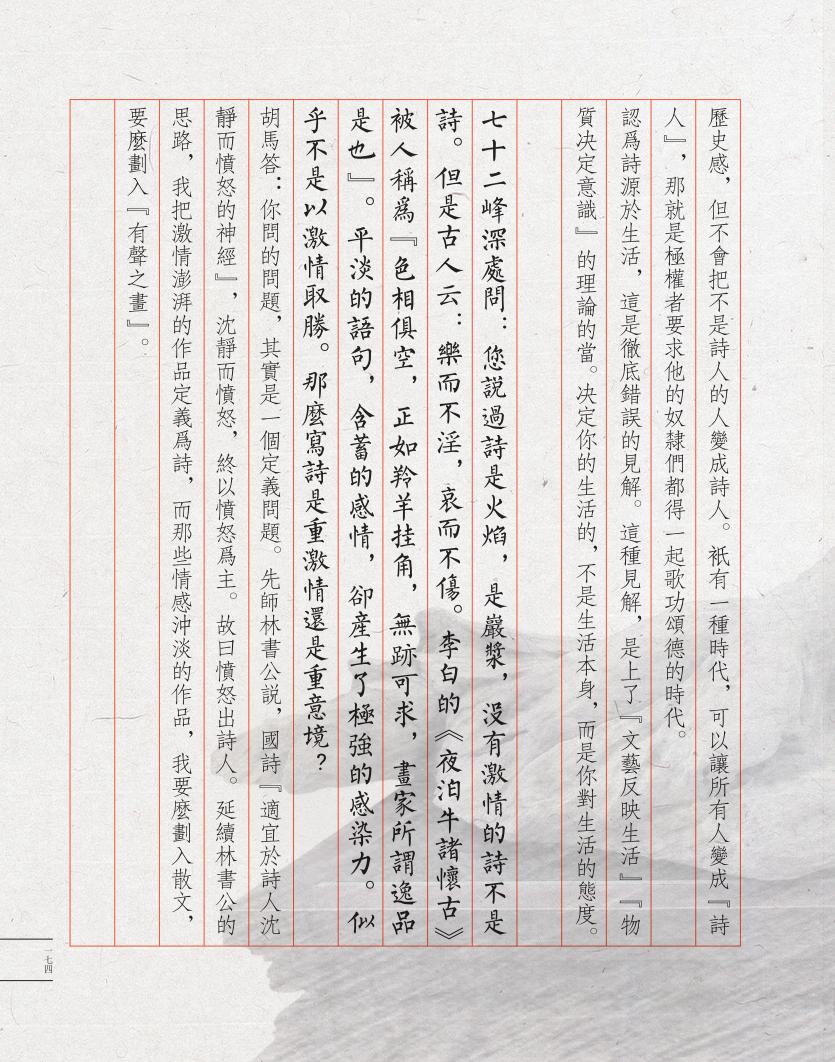 歷史感，但不會把不是詩人的人變成詩人。衹有一種時代，可以讓所有人變成『詩
人』，那就是極權者要求他的奴隸們都得一起歌功頌德的時代。
認爲詩源於生活，這是徹底錯誤的見解。這種見解，是上了『文藝反映生活』『物
質决定意識』的理論的當。决定你的生活的，不是生活本身，而是你對生活的態度。
七十二峰深處問：您説過詩是火焰，是巖漿，没有激情的詩不是
詩。但是古人云：樂而不淫，哀而不傷。李白的《夜泊牛諸懷古》
被人稱爲『色相俱空，正如羚羊挂角，無跡可求，畫家所謂逸品
是也』。平淡的語句，含蓄的感情，卻産生了極強的感染力。似
乎不是以激情取勝。那麼寫詩是重激情還是重意境？
胡馬答：你問的問題，其實是一個定義問題。先師林書公説，國詩『適宜於詩人沈
靜而憤怒的神經』，沈靜而憤怒，終以憤怒爲主。故曰憤怒出詩人。延續林書公的
思路，我把激情澎湃的作品定義爲詩，而那些情感沖淡的作品，我要麼劃入散文，
要麼劃入『有聲之畫』。
一七四